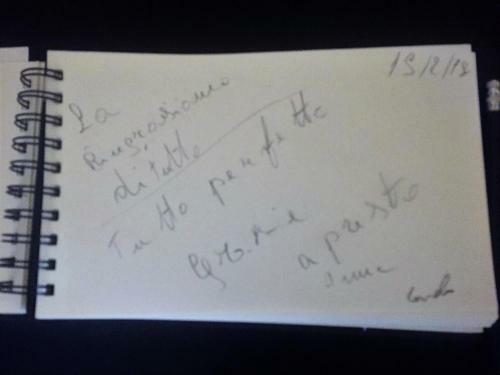 15/2/18
La
Ringraziamo
di tutto
Tutto perfetto
Grazie
a presto